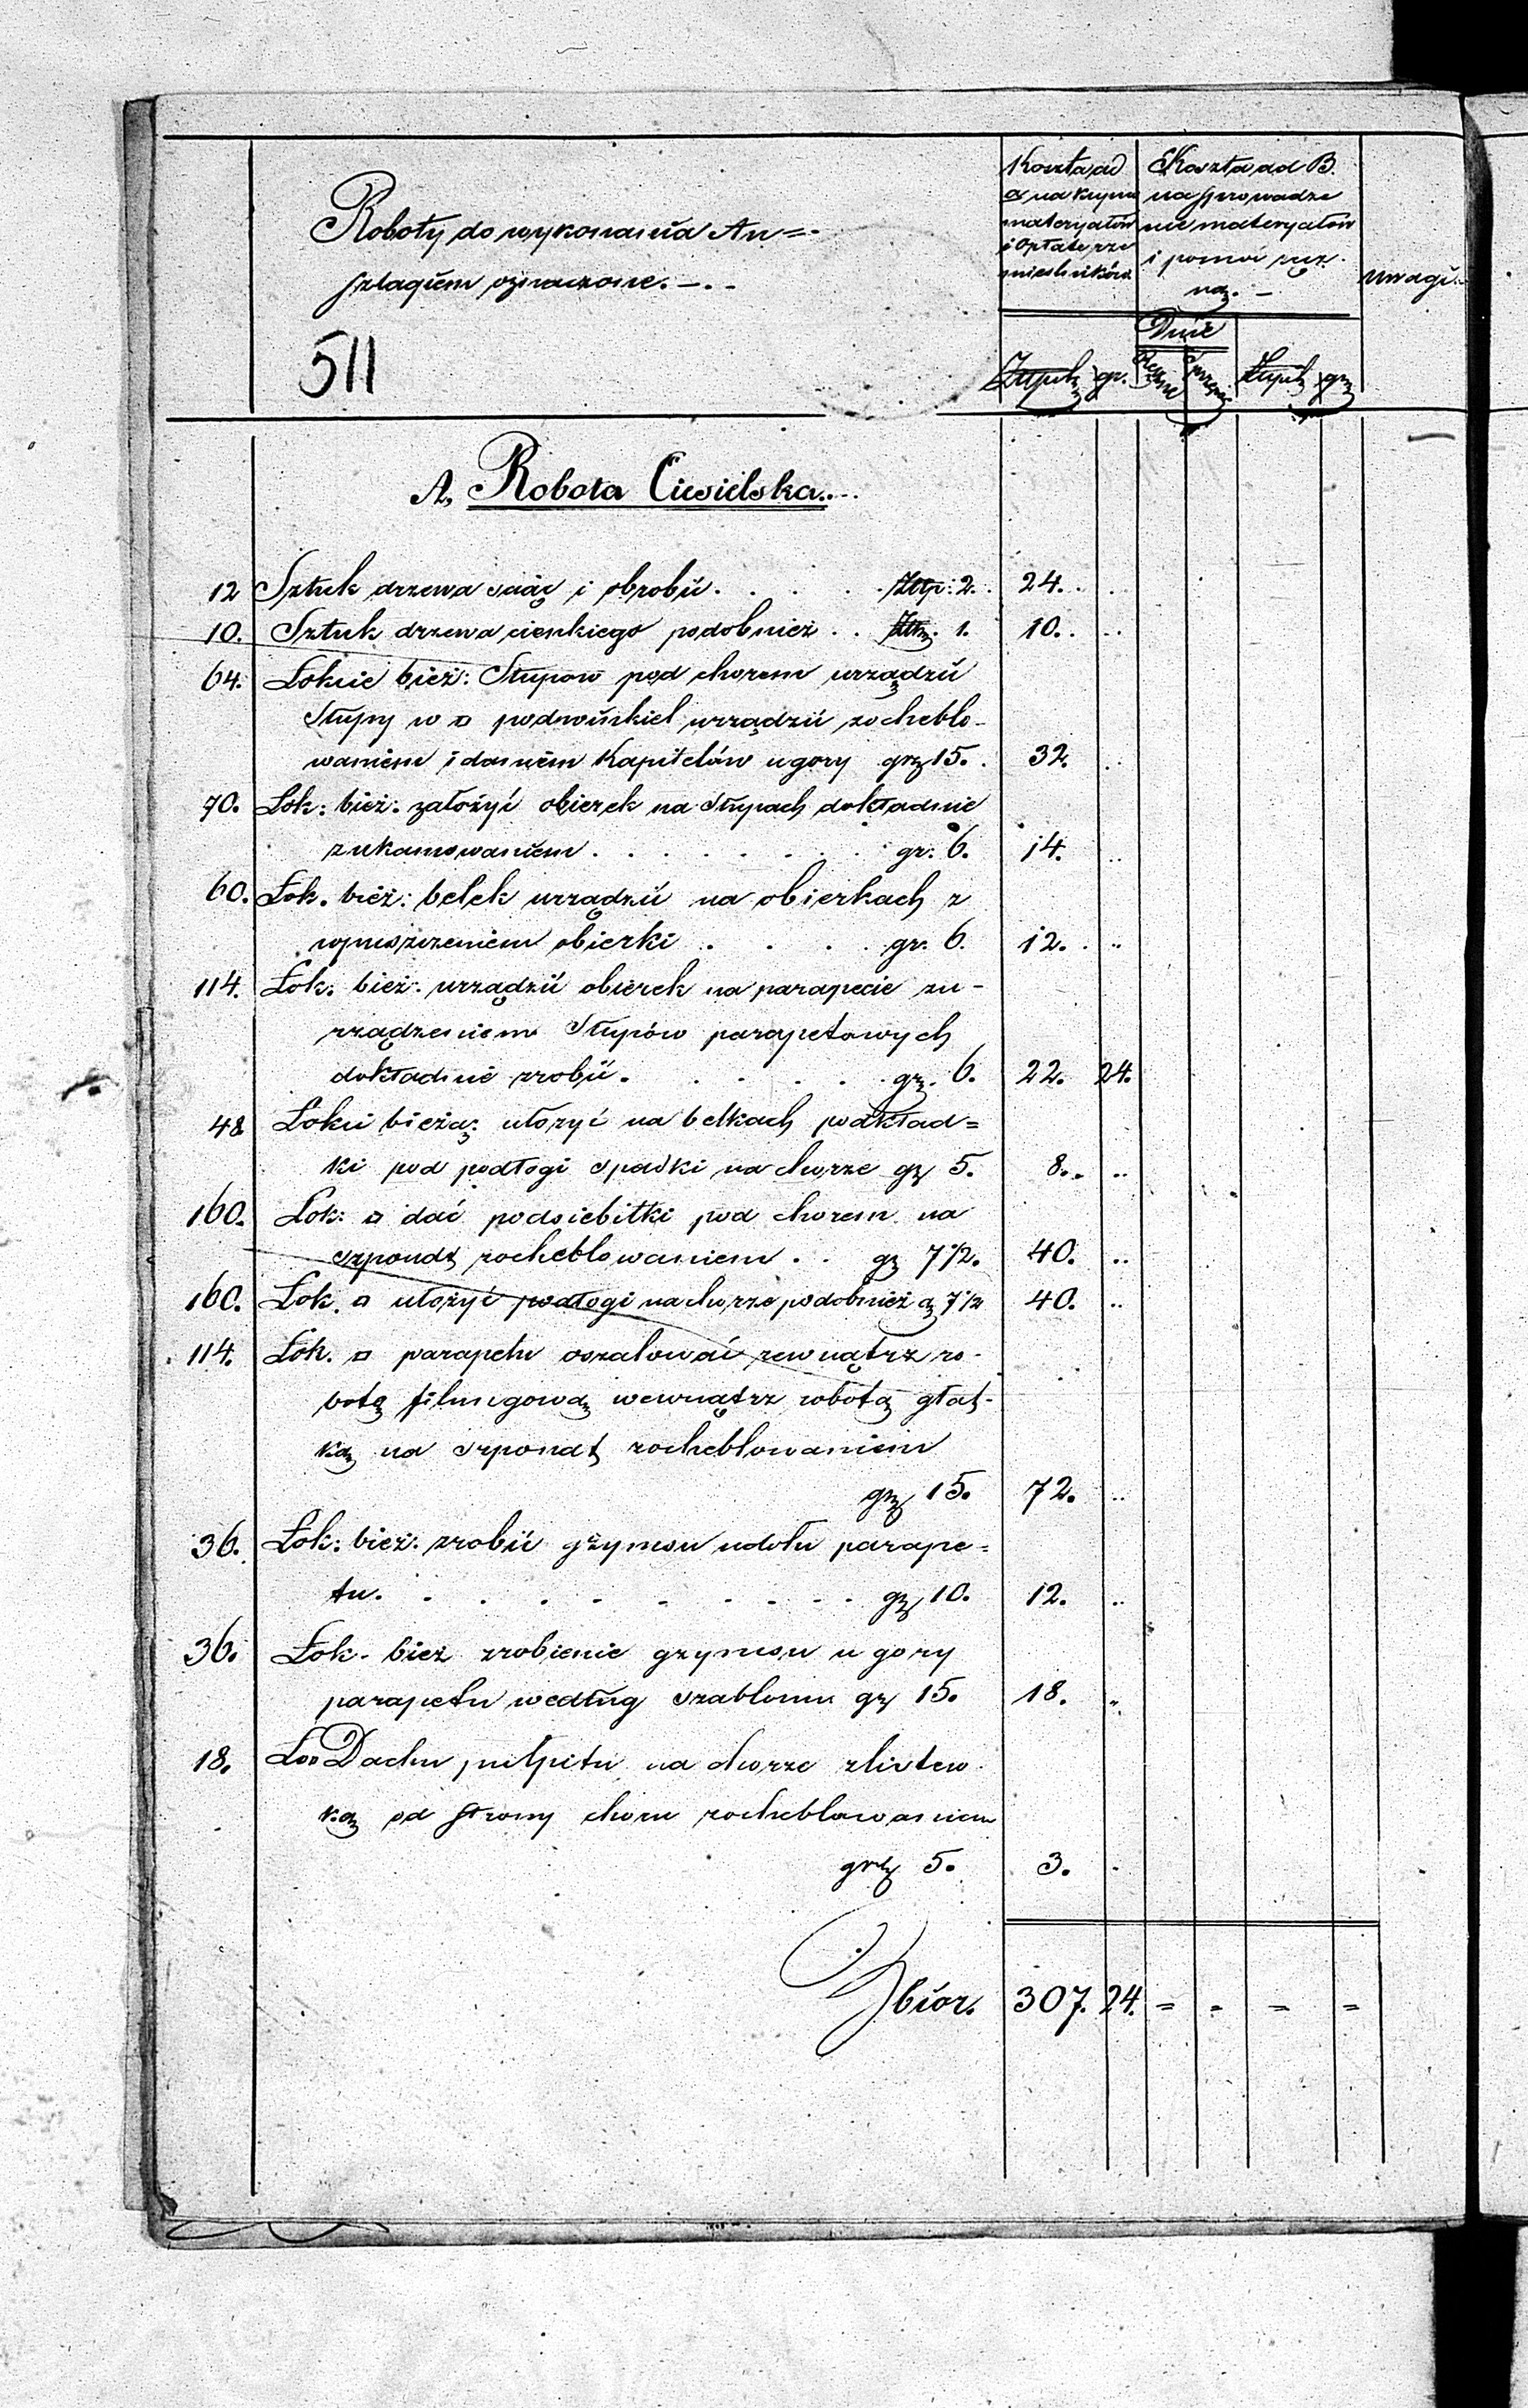 Roboty do wykonania An=
szlagiem oznaczone. -.-
511
Koszta ad
a na kupno
materyałów
i opłatę rze
mieslników
Koszta ad B.
na sprowadze
nie materyałów
i pomoc ręcz
ną. -
uwagi.
Dnie
Złpol gr.
Ręczne
Sprzęż
Złpol gr
A. Robota Ciesielska....
12 Sztuk drzewa sciąć i obrobić . . . . . Złtp: 2. 24. . ..
10. Sztuk drzewa cienkiego podobnież . . Złtp. 1. 10. . ..
64. Łokcie bież: Słupow pod chorem urządzić
Słupy w □ podwońskiel urządzić zocheblo-
waniem i daniem Kapitelów u gory gr 15. 32. ..
70. Łok: bież. założyć obierek na słupach dokładnie
zukamowaniem . . . . . . gr. 6. 14. ..
60. Łok. bież: belek urządzić na obierkach z
wpuszczeniem obierki . . . . gr. 6. 12. . ..
114. Łok. bież. urządzić obierek na parapecie zu-
rządzeniem Słupów parapetowych
dokładnie zrobić. . . . . . gr. 6. 22. 24.
48 Łokci bieżą: ułożyć na belkach podkład=
ki pod podłogi spadki na chorze gr 5. 8.. ..
160. Łok: □ dać podsiebitki pod chorem na
szpondt zocheblowaniem . . gr 7 1/2. 40. ..
160. Łok. □ ułożyć podłogi na chorze podobnież a 7 1/2 40. ..
114. Łok. □ parapetu oszalować zewnątrz ro-
botą filungową wewnątrz robotą gład-
ką na szpondt zocheblowaniem
gr 15. 72. ..
36. Łok: bież. zrobić gzymsu udołu parape=
tu. . . . . . . . . . gr 10. 12. ..
36. Łok. bież zrobienie gzymsu u gory
parapetu według szablonu gr 15. 18. ..
18. Łok Dachu pulpitu na chorze zlistew
ką od strony choru zocheblowaniem
gr 5. 3. .
Zbiór. 307. 24. = = = =